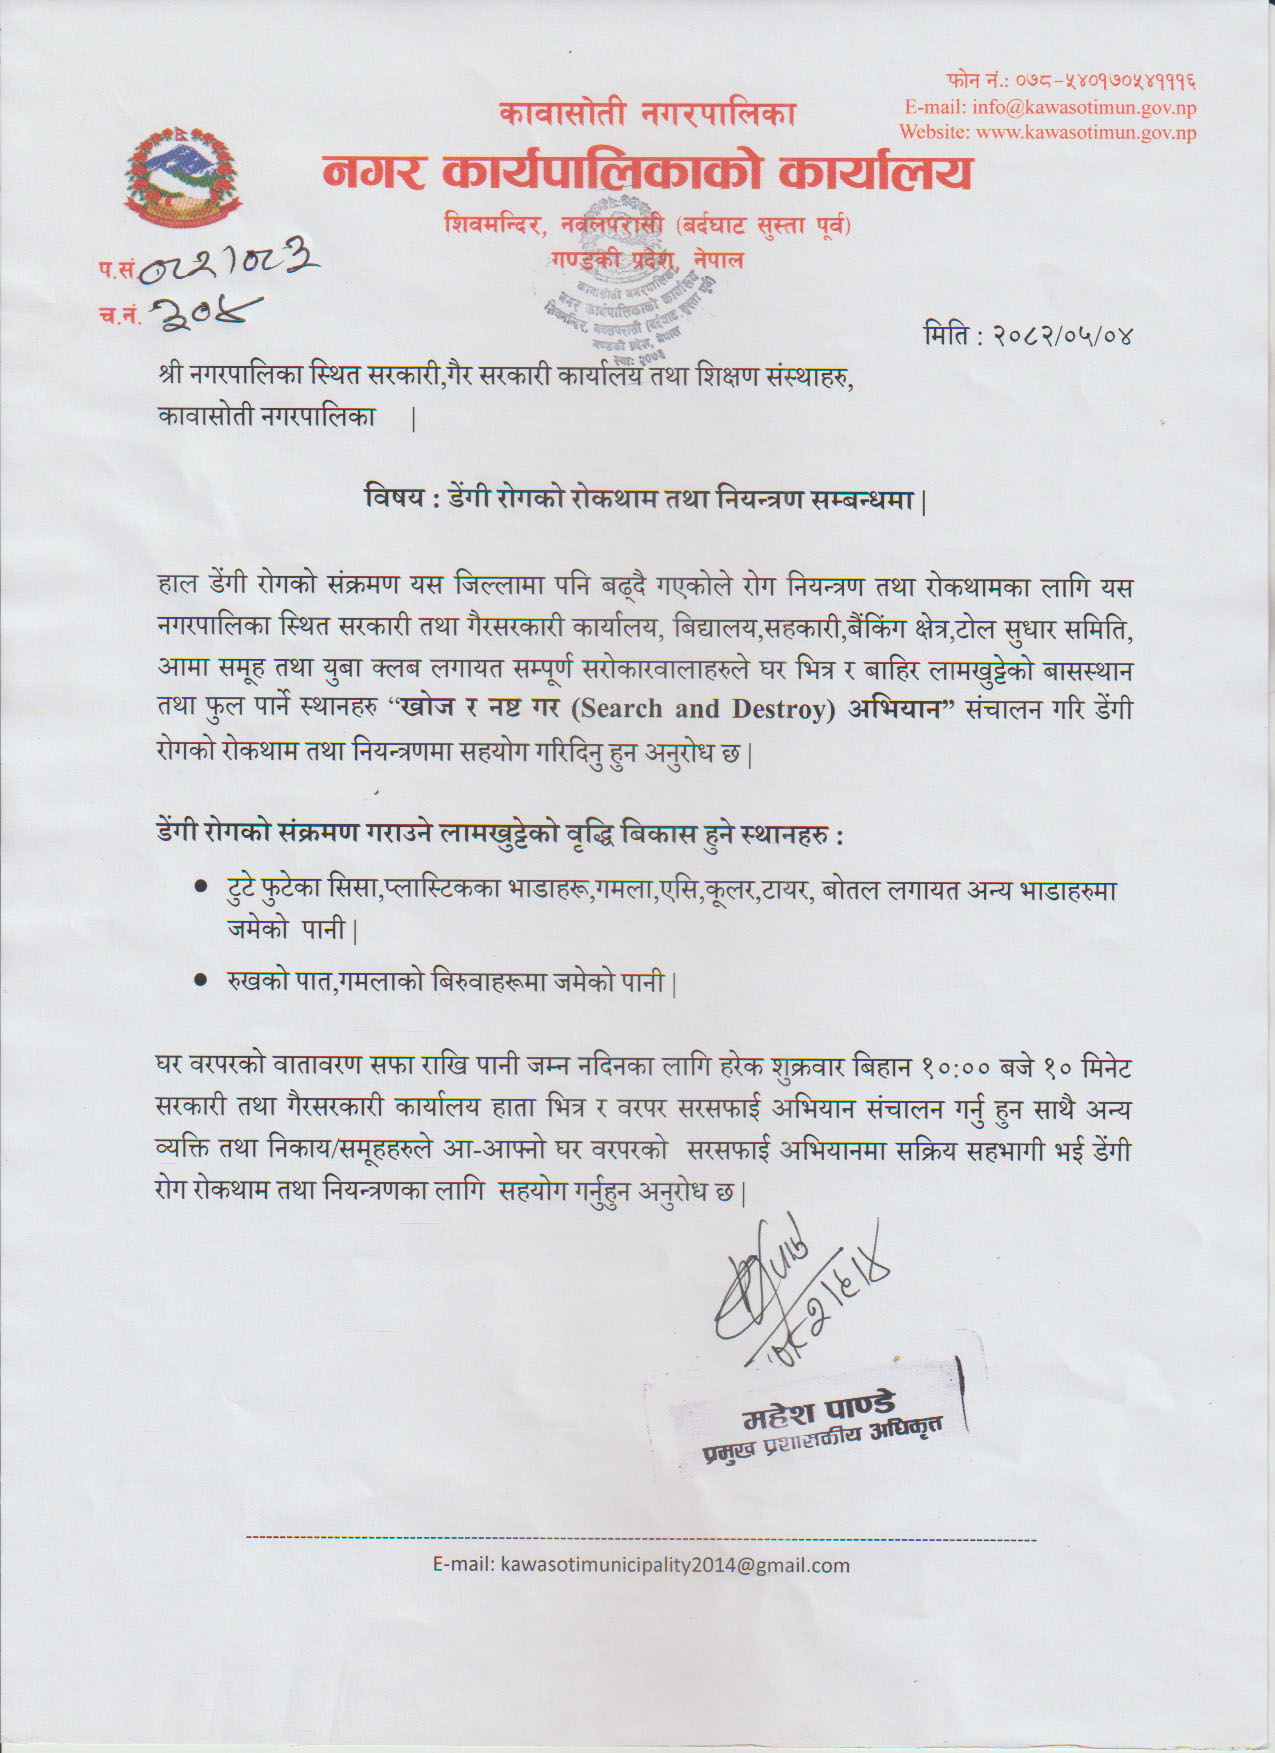 फोन नं.: ०७८-५४०१७०५४१११६
E-mail: info@kawasotimun.gov.np
Website: www.kawasotimun.gov.np
कावासोती नगरपालिका
नगर कार्यपालिकाको कार्यालय
शिवमन्दिर, नवलपरासी (बर्दघाट सुस्ता पूर्व)
गण्डकी प्रदेश, नेपाल
प.सं. ०८२।०८३
च.नं. ३०४
कावासोती नगरपालिका
नगर कार्यपालिकाको कार्यालय
शिवमन्दिर, नवलपरासी (बर्दघाट सुस्ता पूर्व)
गण्डकी प्रदेश, नेपाल
स्था: २०७१
मिति : २०८२/०५/०४
श्री नगरपालिका स्थित सरकारी,गैर सरकारी कार्यालय तथा शिक्षण संस्थाहरु,
कावासोती नगरपालिका |
विषय : डेंगी रोगको रोकथाम तथा नियन्त्रण सम्बन्धमा |
हाल डेंगी रोगको संक्रमण यस जिल्लामा पनि बढ्दै गएकोले रोग नियन्त्रण तथा रोकथामका लागि यस
नगरपालिका स्थित सरकारी तथा गैरसरकारी कार्यालय, बिद्यालय,सहकारी,बैंकिंग क्षेत्र,टोल सुधार समिति,
आमा समूह तथा युबा क्लब लगायत सम्पूर्ण सरोकारवालाहरुले घर भित्र र बाहिर लामखुट्टेको बासस्थान
तथा फुल पार्ने स्थानहरु “खोज र नष्ट गर (Search and Destroy) अभियान” संचालन गरि डेंगी
रोगको रोकथाम तथा नियन्त्रणमा सहयोग गरिदिनु हुन अनुरोध छ |
डेंगी रोगको संक्रमण गराउने लामखुट्टेको वृद्धि बिकास हुने स्थानहरु :
● टुटे फुटेका सिसा,प्लास्टिकका भाडाहरू,गमला,एसि,कूलर,टायर, बोतल लगायत अन्य भाडाहरुमा
जमेको पानी |
● रुखको पात,गमलाको बिरुवाहरूमा जमेको पानी |
घर वरपरको वातावरण सफा राखि पानी जम्न नदिनका लागि हरेक शुक्रवार बिहान १०:०० बजे १० मिनेट
सरकारी तथा गैरसरकारी कार्यालय हाता भित्र र वरपर सरसफाई अभियान संचालन गर्नु हुन साथै अन्य
व्यक्ति तथा निकाय/समूहहरुले आ-आफ्नो घर वरपरको सरसफाई अभियानमा सक्रिय सहभागी भई डेंगी
रोग रोकथाम तथा नियन्त्रणका लागि सहयोग गर्नुहुन अनुरोध छ |
०८२।५।४
महेश पाण्डे
प्रमुख प्रशासकीय अधिकृत
E-mail: kawasotimunicipality2014@gmail.com